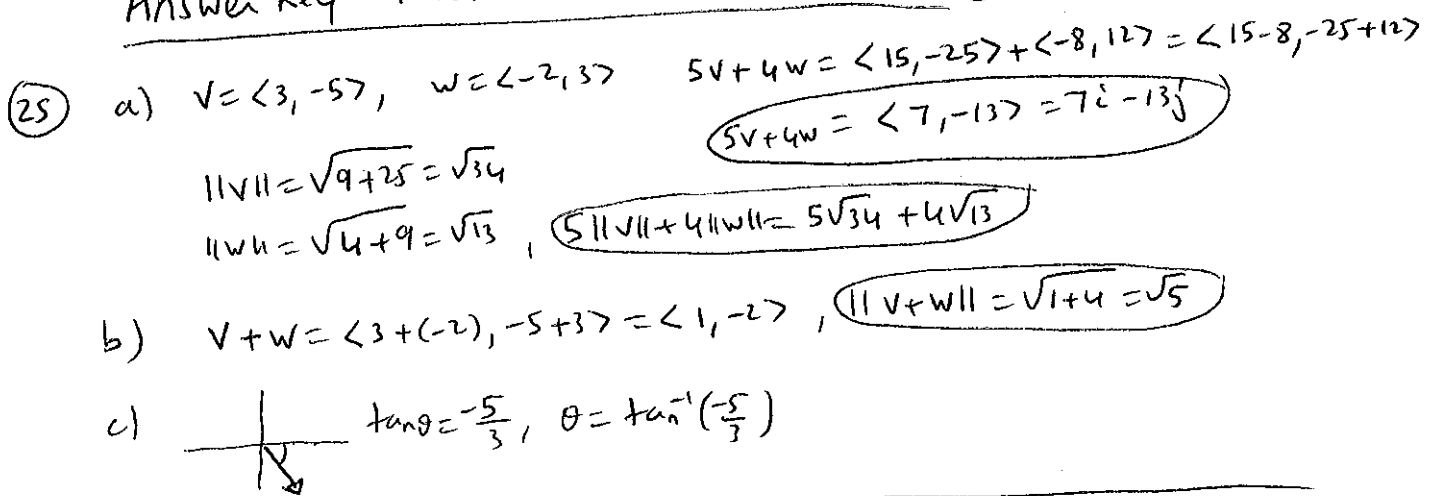 Answer Key
(25) a) V = <3, -5>, W = <-2, 3> 5V + 4W = <15, -25> + <-8, 12> = <15-8, -25+12>
5V + 4W = <7, -13> = 7i - 13j
||V|| = √9+25 = √34
||W|| = √4+9 = √13, 5||V|| + 4||W|| = 5√34 + 4√13
b) V + W = <3+(-2), -5+3> = <1, -2>, ||V+W|| = √1+4 = √5
c) tanθ = -5/3, θ = tan⁻¹(-5/3)